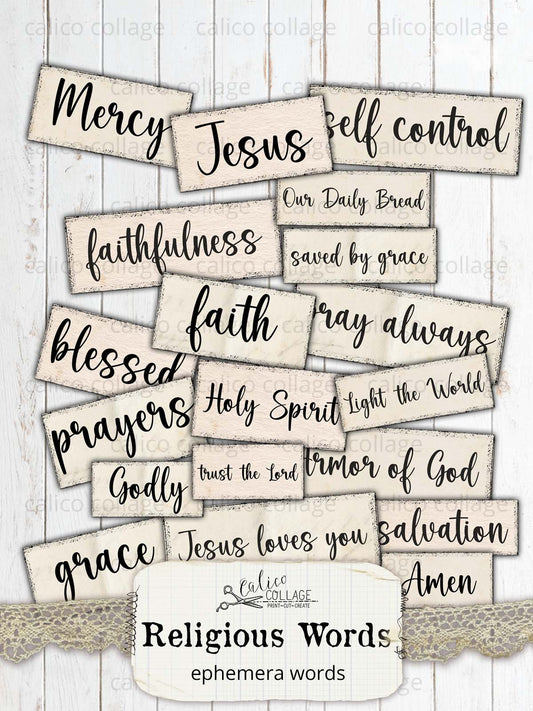 calico collage
calico collage
Mercy
Jesus
self control
Our Daily Bread
calico collage
faithfulness
saved by grace
calico collage
calico collage
faith
ray always
blessed
Holy Spirit
Light the World
prayers
calico collage
trust the Lord
rmor of God
Godly
calico collage
Jesus loves you
salvation
grace
Amen
Calico
COLLAGE
PRINT-CUT-CREATE
Religious Words
ephemera words
calico collage
calico collage